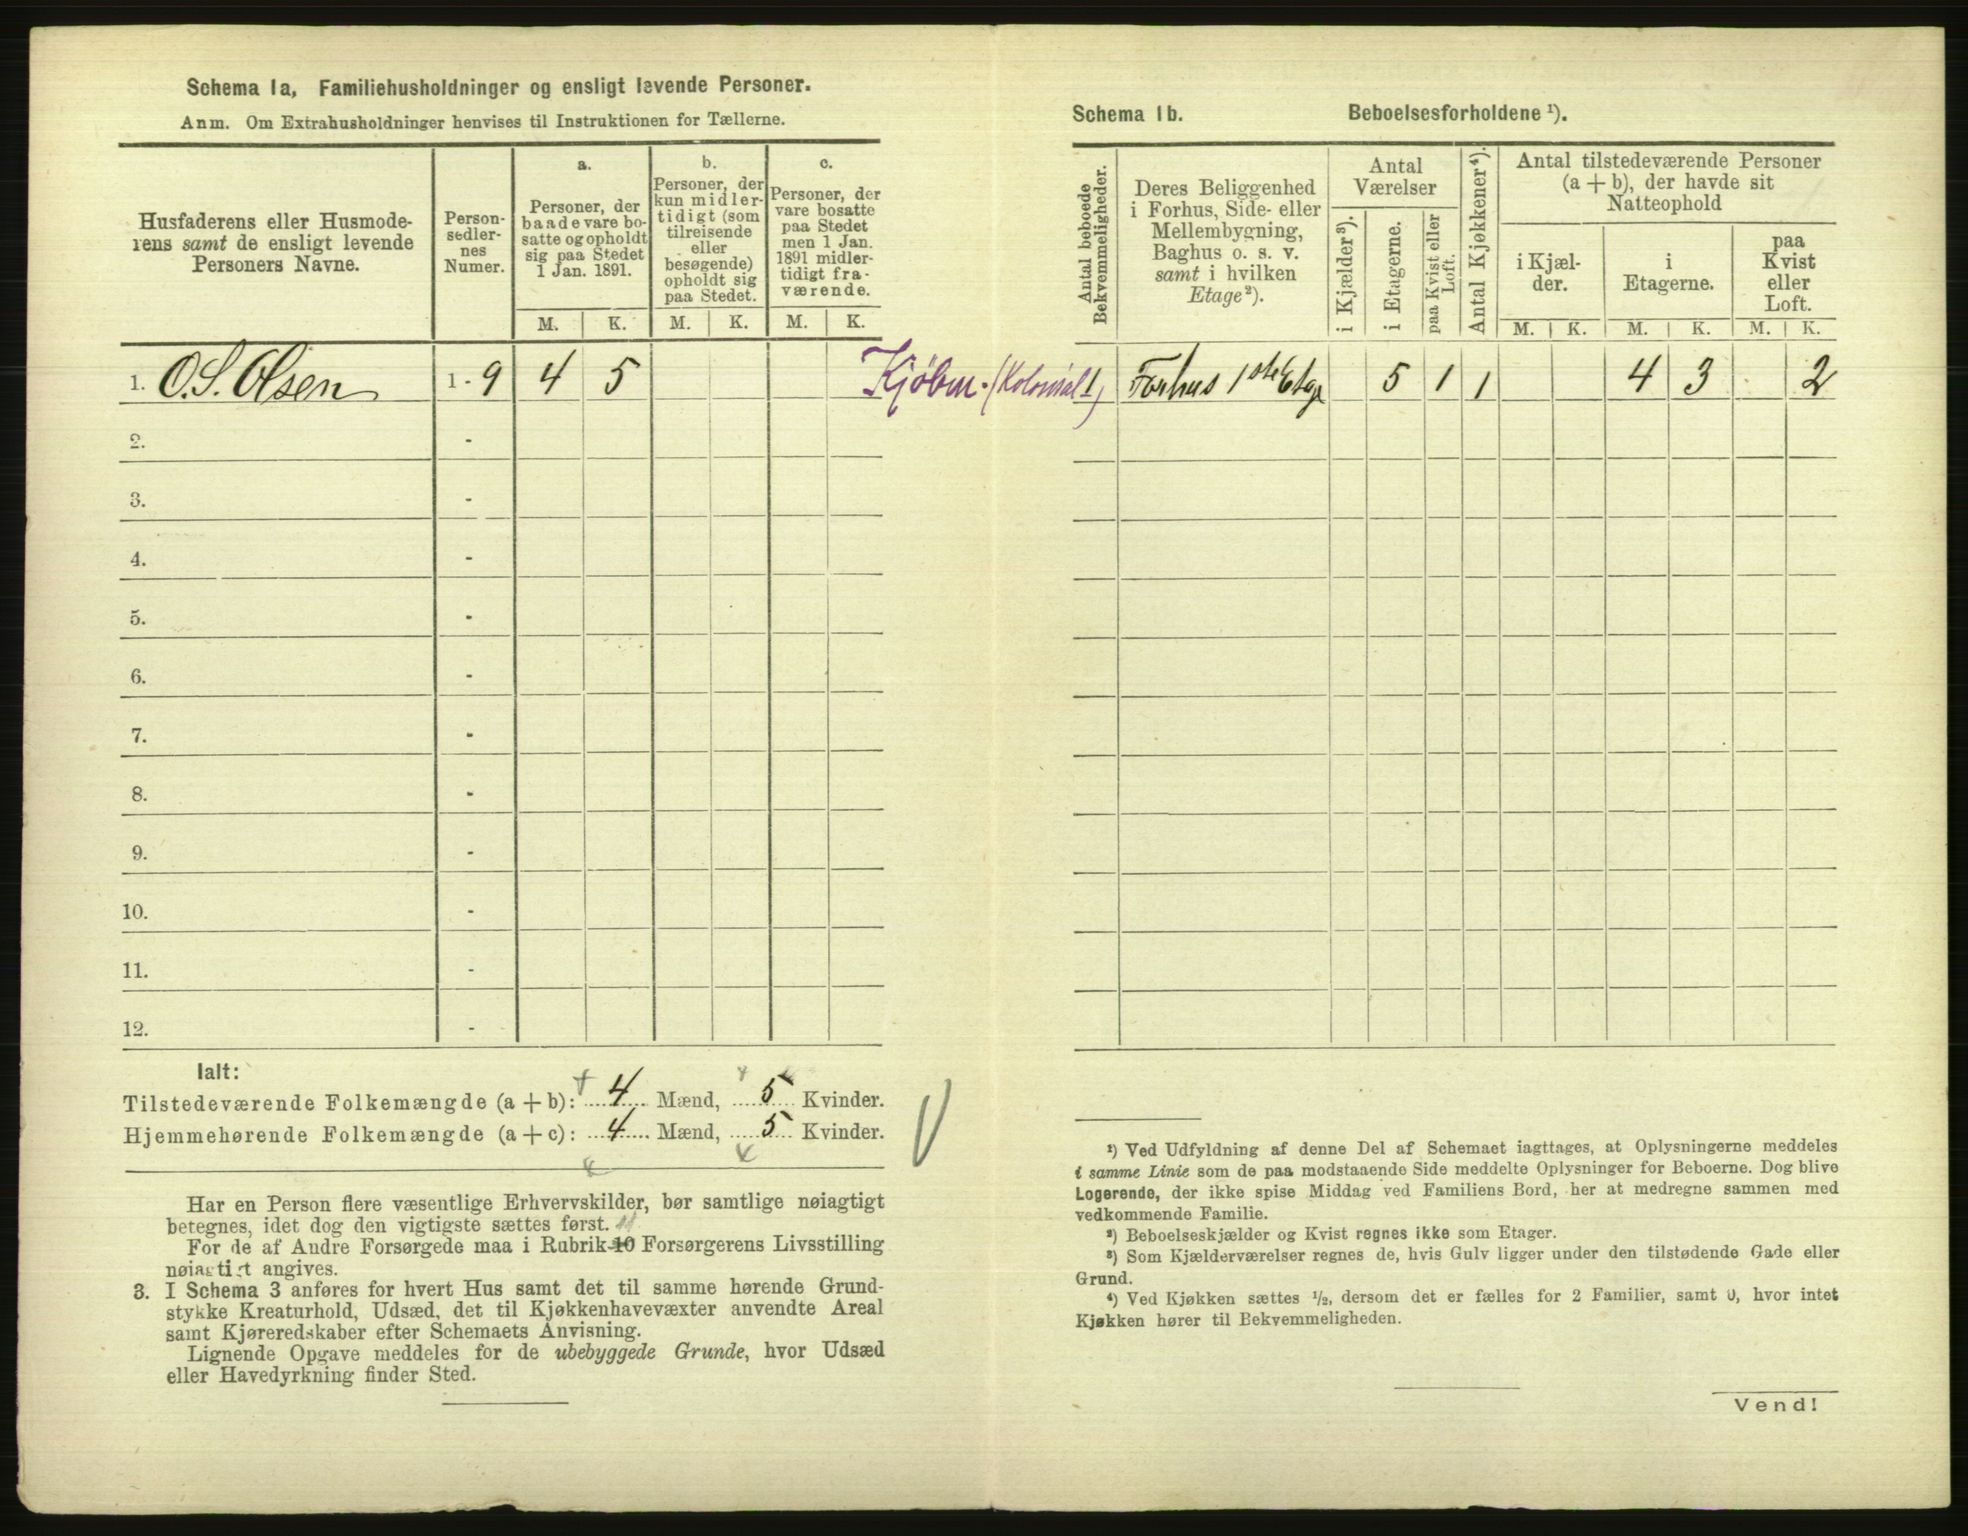 Schema 1a, Familiehusholdninger og ensligt levende Personer.
Anm. Om Extrahusholdninger henvises til Instruktionen for Tællerne.
Husfaderens eller Husmode-
rens samt de ensligt levende
Personers Navne.
Person-
sedler-
nes
Numer.
a.
Personer, der
baade vare bo-
satte og opholdt
sig paa Stedet
1 Jan. 1891.
b.
Personer, der
kun midler-
tidigt (som
tilreisende
eller
besøgende)
opholdt sig
paa Stedet.
c.
Personer, der
vare bosatte
paa Stedet
men 1 Jan.
1891 midler-
tidigt fra-
værende.
M. K. M. K. M. K.
1. O. S. Olsen 1 - 9 4 5
2. -
3. -
4. -
5. -
6. -
7. -
8. -
9. -
10. -
11. -
12. -
Ialt:
Tilstedeværende Folkemængde (a + b): 4 Mænd, 5 Kvinder.
Hjemmehørende Folkemængde (a + c): 4 Mænd, 5 Kvinder.
Har en Person flere væsentlige Erhvervskilder, bør samtlige nøiagtigt
betegnes, idet dog den vigtigste sættes først. 11
For de af Andre Forsørgede maa i Rubrik 10 Forsørgerens Livsstilling
nøiagtigt angives.
3. I Schema 3 anføres for hvert Hus samt det til samme hørende Grund-
stykke Kreaturhold, Udsæd, det til Kjøkkenhavevæxter anvendte Areal
samt Kjøreredskaber efter Schemaets Anvisning.
Lignende Opgave meddeles for de ubebyggede Grunde, hvor Udsæd
eller Havedyrkning finder Sted.
Schema 1b. Beboelsesforholdene ¹).
Antal beboede
Bekvemmeligheder.
Deres Beliggenhed
i Forhus, Side- eller
Mellembygning,
Baghus o. s. v.
samt i hvilken
Etage ²).
Antal
Værelser
i Kjælder ³).
i Etagerne.
paa Kvist eller
Loft.
Antal Kjøkkener ⁴).
Antal tilstedeværende Personer
(a + b), der havde sit
Natteophold
i Kjæl-
der.
i
Etagerne.
paa
Kvist
eller
Loft.
M. K. M. K. M. K.
Kjøbm. (Kolonial) 1 Forhus 1ste Etage 5 1 1 4 3 2
¹) Ved Udfyldning af denne Del af Schemaet iagttages, at Oplysningerne meddeles
i samme Linie som de paa modstaaende Side meddelte Oplysninger for Beboerne. Dog blive
Logerende, der ikke spise Middag ved Familiens Bord, her at medregne sammen med
vedkommende Familie.
²) Beboelseskjælder og Kvist regnes ikke som Etager.
³) Som Kjælderværelser regnes de, hvis Gulv ligger under den tilstødende Gade eller
Grund.
⁴) Ved Kjøkken sættes ½, dersom det er fælles for 2 Familier, samt 0, hvor intet
Kjøkken hører til Bekvemmeligheden.
Vend!